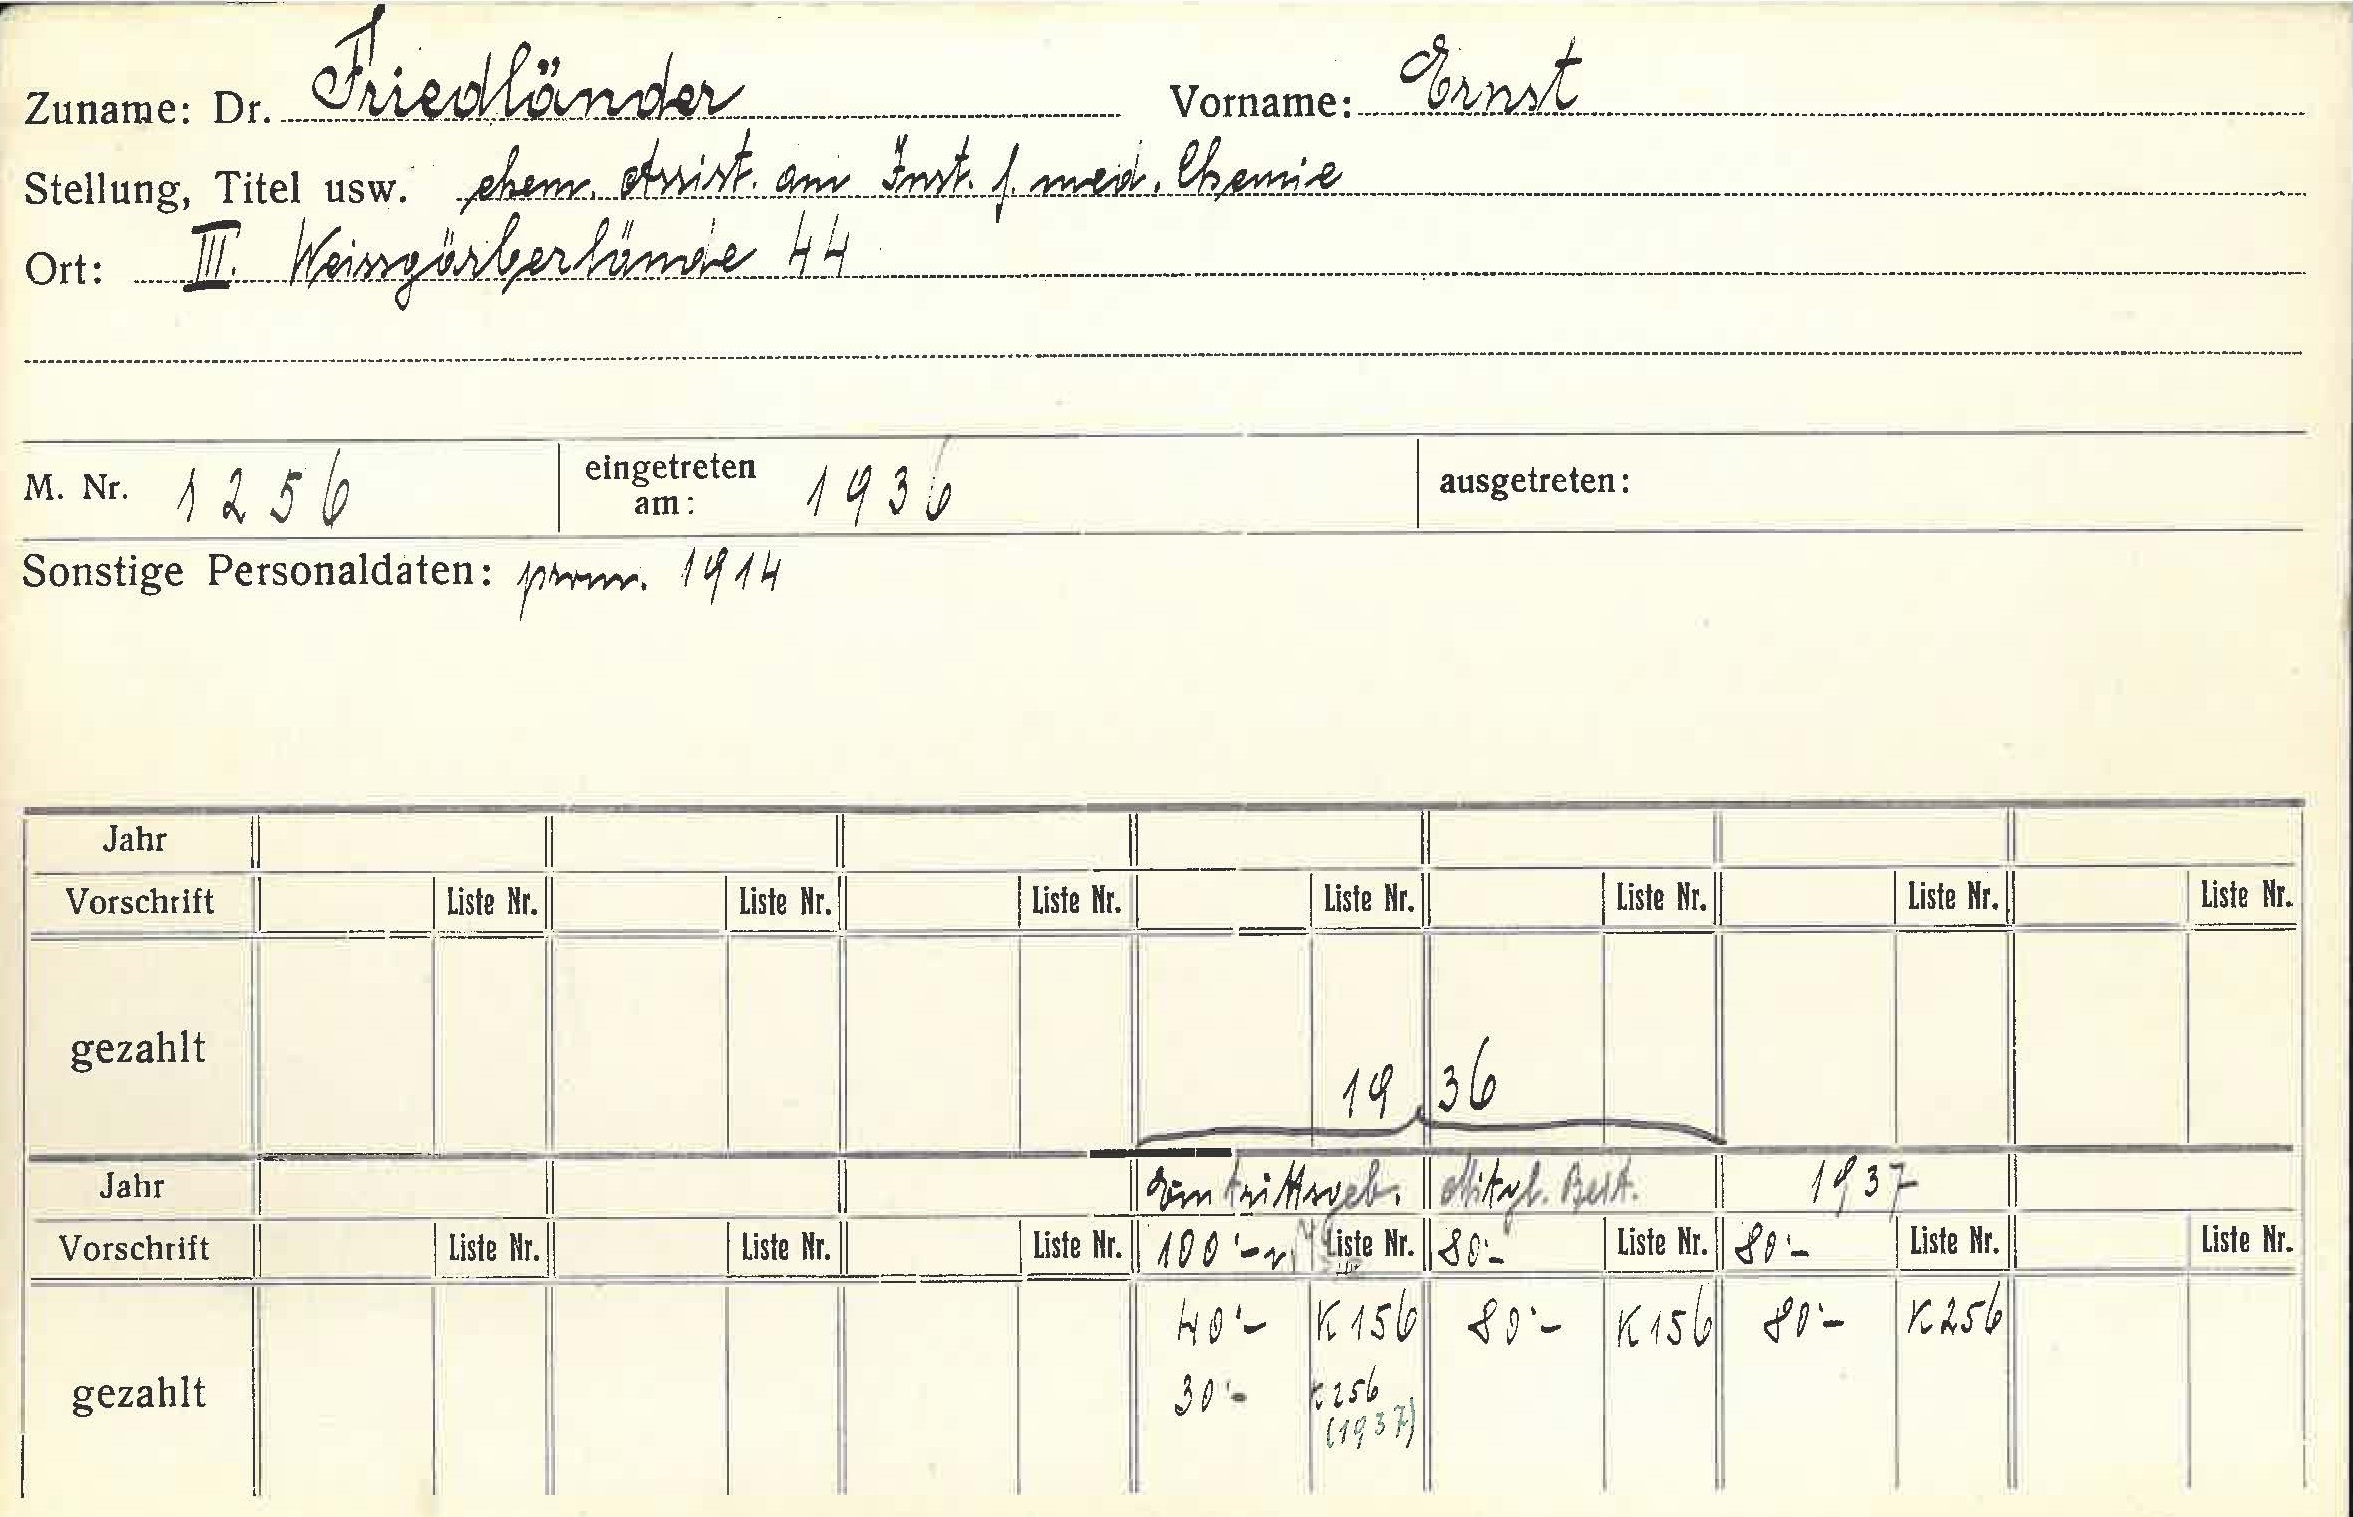 Zuname: Dr. Friedländer Vorname: Ernst
Stellung, Titel usw. ehem. Assist. am Inst. f. med. Chemie
Ort: III. Weissgärberlände 44
M. Nr. 1256 eingetreten am: 1936 ausgetreten:
Sonstige Personaldaten: prom. 1914
Jahr
Vorschrift Liste Nr. Liste Nr. Liste Nr. Liste Nr. Liste Nr. Liste Nr. Liste Nr.
gezahlt
1936
Jahr Eintrittsgeb. Mitgl. Beit. 1937
Vorschrift Liste Nr. Liste Nr. Liste Nr. 100'- Liste Nr. 80'- Liste Nr. 80'- Liste Nr. Liste Nr.
40'- K 156 80'- K 156 80'- K 256
gezahlt 30'- K 256
(1937)